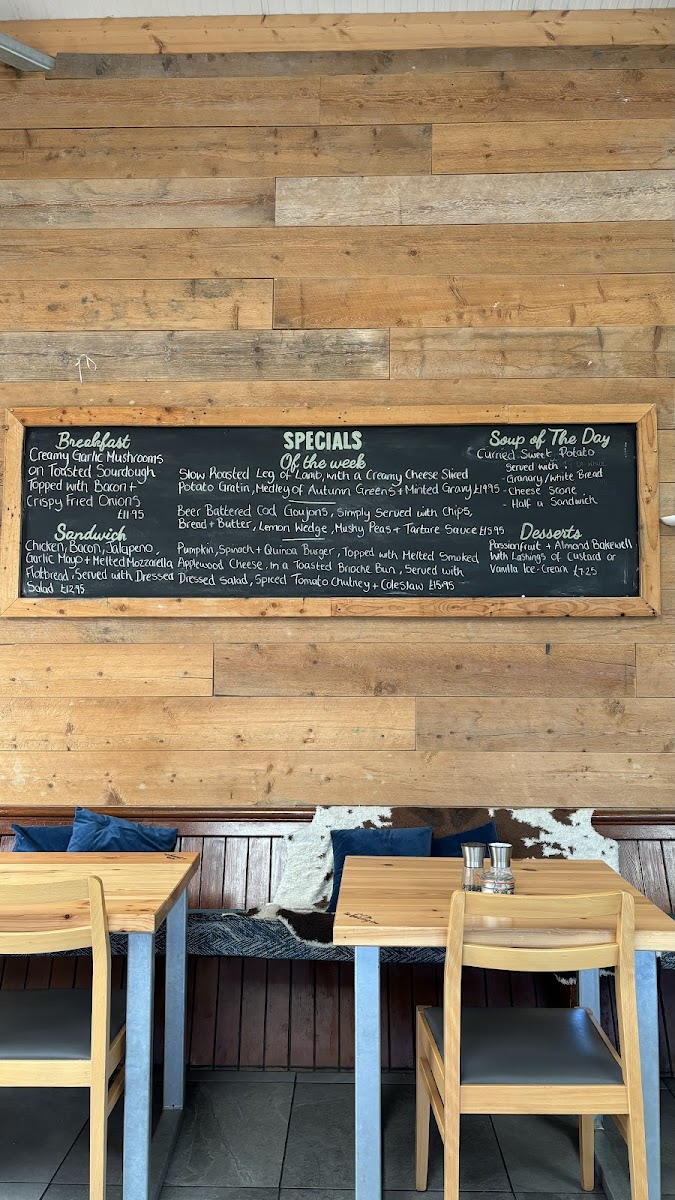 Breakfast
Creamy Garlic Mushrooms
on Toasted Sourdough
Topped with Bacon +
Crispy Fried Onions
£11.95
Sandwich
Chicken, Bacon, Jalapeno,
Garlic Mayo + Melted Mozzarella
Flatbread, Served with Dressed
Salad £12.95
SPECIALS
Of the week
Slow Roasted Leg of Lamb, with a Creamy Cheese Sliced
Potato Gratin, Medley of Autumn Greens + Minted Gravy £19.95
Beer Battered Cod Goujons, Simply Served with Chips,
Bread + Butter, Lemon Wedge, Mushy Peas + Tartare Sauce £15.95
Pumpkin, Spinach + Quinoa Burger, Topped with Melted Smoked
Applewood Cheese, In a Toasted Brioche Bun, Served with
Dressed Salad, Spiced Tomato Chutney + Coleslaw £15.95
Soup of The Day
Curried Sweet Potato
Served with :
- Granary/White Bread
- Cheese Scone
- Half a Sandwich
Desserts
Passionfruit + Almond Bakewell
With Lashings of Custard or
Vanilla Ice-Cream £7.25